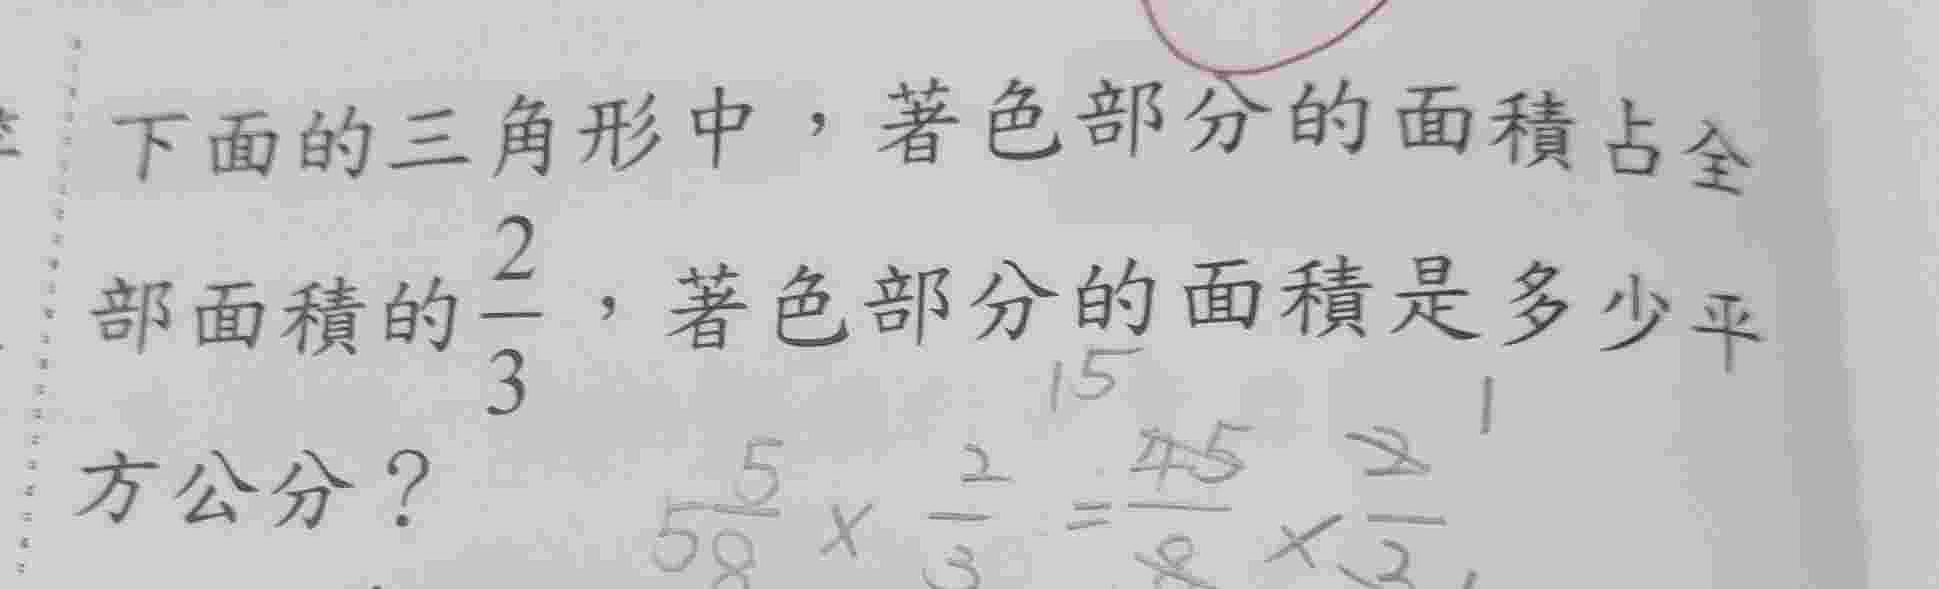 下面的三角形中，著色部分的面積占全
部面積的2/3，著色部分的面積是多少平
方公分？
15 1
5 5/8 × 2/3 = 45/8 × 2/3